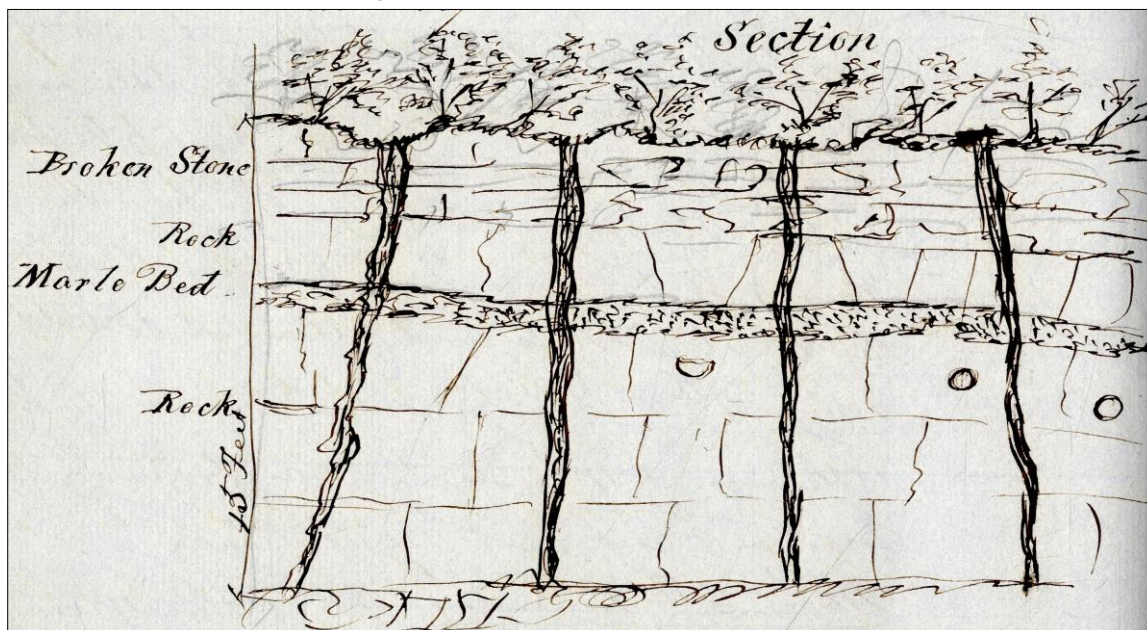 Section
Broken Stone
Rock
Marle Bed
Rock
15 Feet